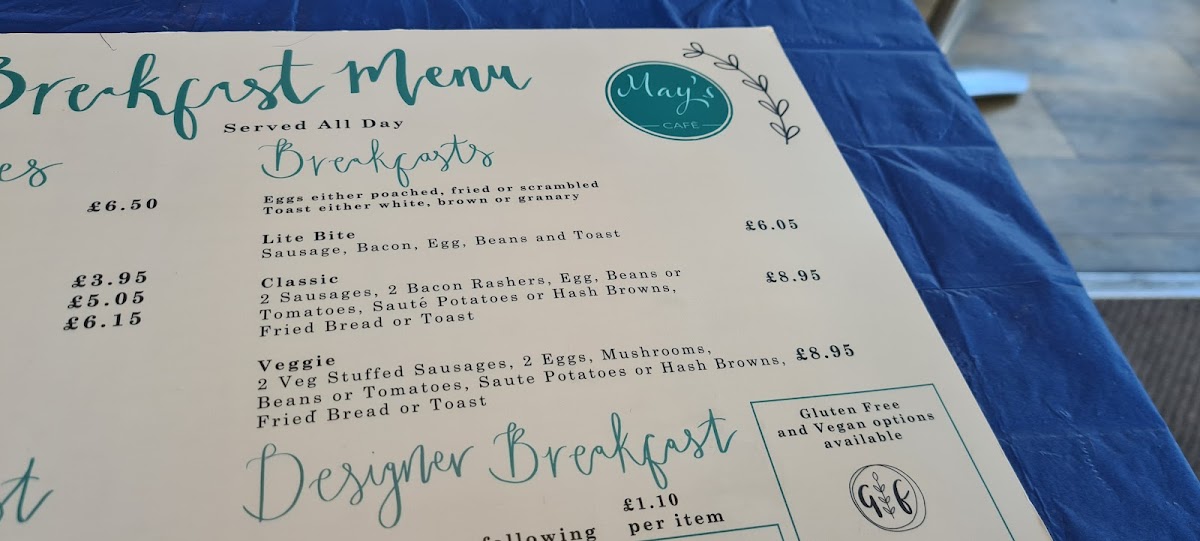 Breakfast Menu
May's
CAFÉ
Served All Day
£6.50
£3.95
£5.05
£6.15
Breakfasts
Eggs either poached, fried or scrambled
Toast either white, brown or granary
Lite Bite
Sausage, Bacon, Egg, Beans and Toast £6.05
Classic
2 Sausages, 2 Bacon Rashers, Egg, Beans or £8.95
Tomatoes, Sauté Potatoes or Hash Browns,
Fried Bread or Toast
Veggie
2 Veg Stuffed Sausages, 2 Eggs, Mushrooms,
Beans or Tomatoes, Saute Potatoes or Hash Browns, £8.95
Fried Bread or Toast
Designer Breakfast
£1.10
following per item
Gluten Free
and Vegan options
available
G f